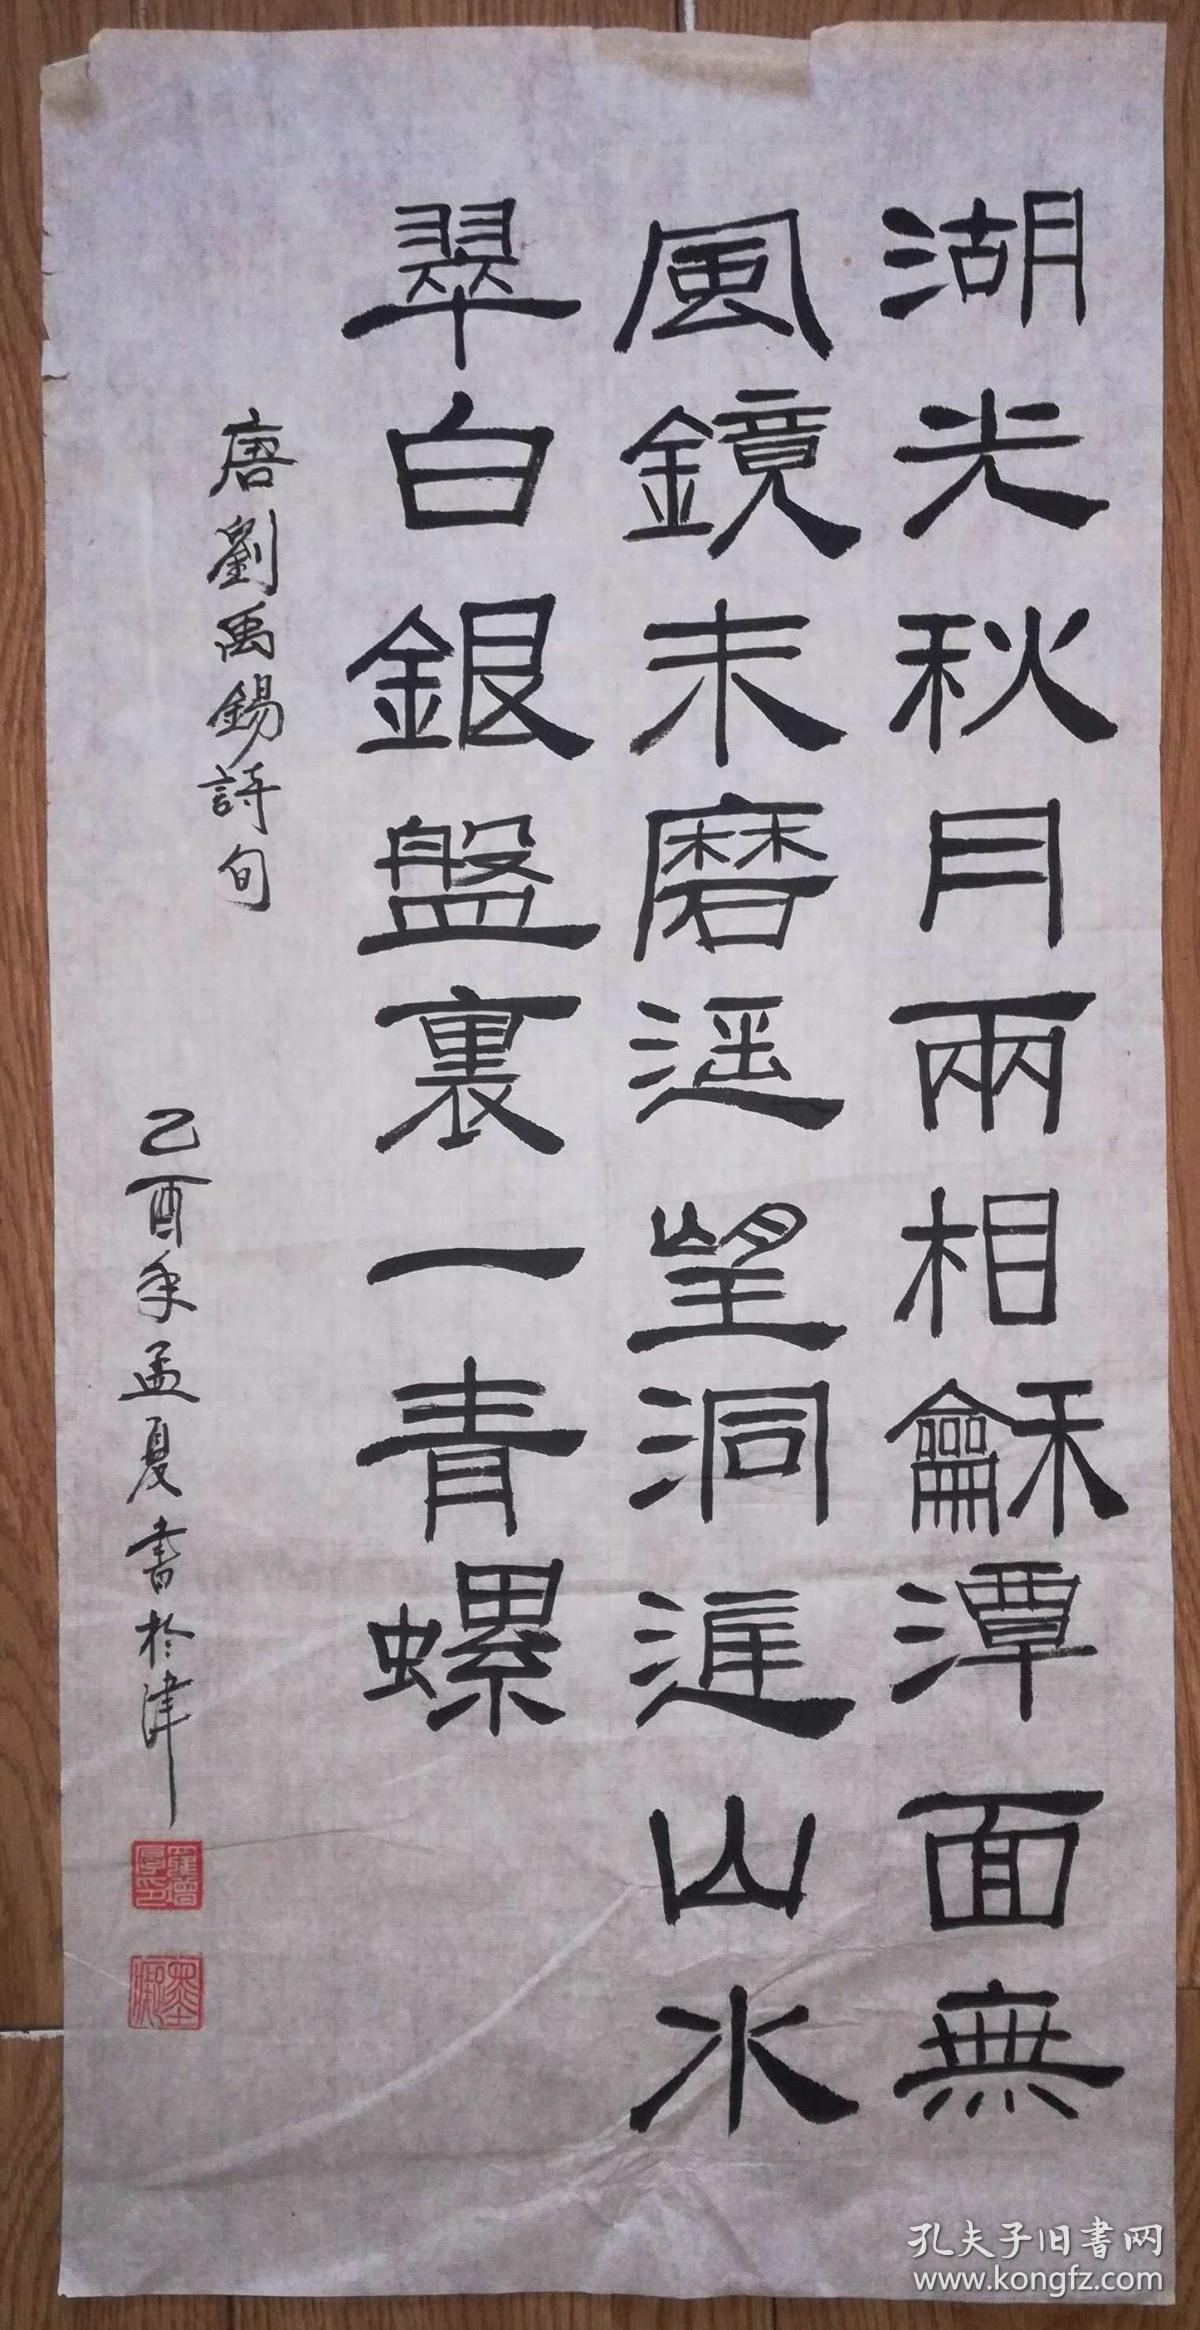 湖光秋月兩相龢潭面無
風鏡未磨遥望洞庭山水
翠白銀盤裏一青螺
唐劉禹錫詩句
乙酉年孟夏書於津
孔夫子旧书网
www.kongfz.com